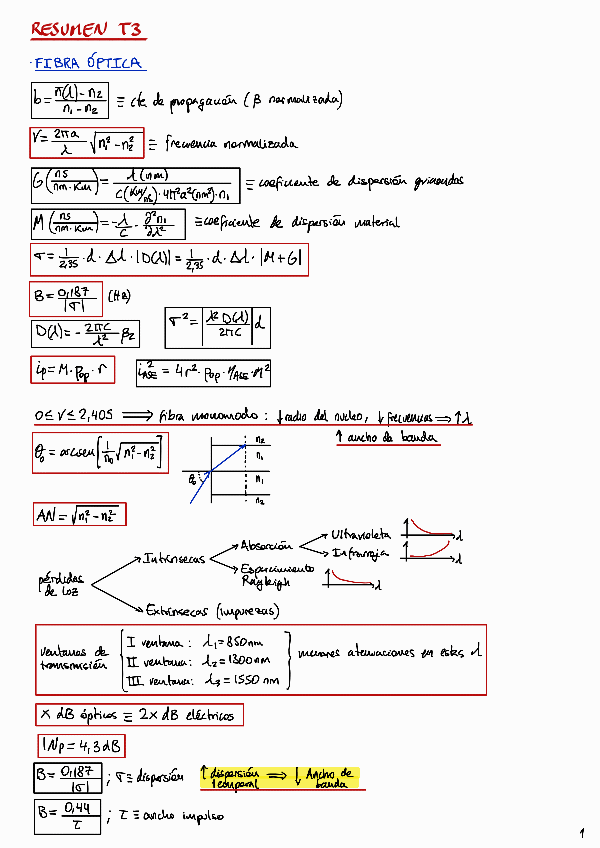 RESUMEN T3
· FIBRA ÓPTICA
b = (n(λ) - n2) / (n1 - n2) ≡ cte de propagación (β normalizada)
V = (2πa / λ) √(n1² - n2²) ≡ frecuencia normalizada
G (ns / nm·Km) = λ(nm) / (C(Km/ns) · 4π²a²(nm²)·n1) ≡ coeficiente de dispersión guiaondas
M (ns / nm·Km) = -λ/C · ∂²n1/∂λ² ≡ coeficiente de dispersión material
σ = 1/2,35 · d · Δλ · |D(λ)| = 1/2,35 · d · Δλ · |M+G|
B = 0,187 / |σ| (Hz)
D(λ) = - (2πC / λ²) β2
σ² = |λ² D(λ) / 2πC| d
ip = M · Pop · r
i²ASE = 4r² · Pop · ηASE · M²
0 ≤ V ≤ 2,405 ⟹ fibra monomodo: ↓ radio del nucleo, ↓ frecuencias ⟹ ↑ λ
↑ ancho de banda
θ0 = arcsen[1/n0 √(n1² - n2²)]
n2
n1
θ0
n1
n2
AN = √(n1² - n2²)
pérdidas de luz
Intrínsecas
Absorción
Ultravioleta
λ
Infrarroja
λ
Esparcimiento Rayleigh
λ
Extrínsecas (impurezas)
ventanas de transmisión
I ventana: λ1 = 850 nm
II ventana: λ2 = 1300 nm
III ventana: λ3 = 1550 nm
menores atenuaciones en estas λ
X dB ópticos ≡ 2X dB eléctricos
1Np = 4,3 dB
B = 0,187 / |σ| ; σ ≡ dispersión
↑ dispersión temporal ⟹ ↓ Ancho de banda
B = 0,44 / τ ; τ ≡ ancho impulso
1